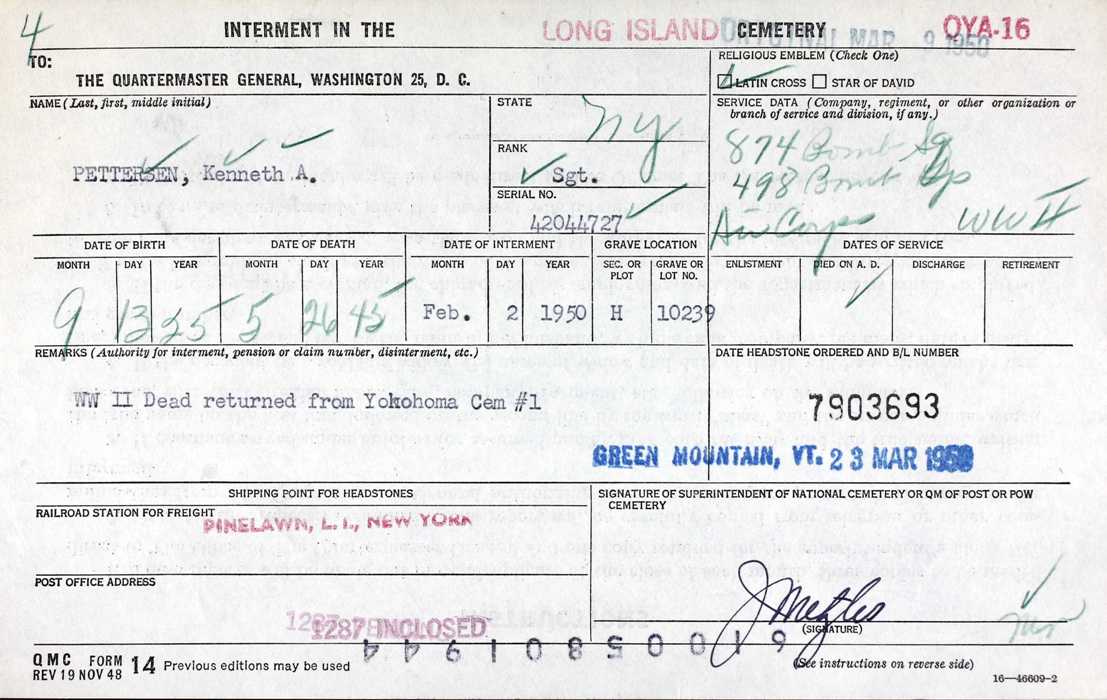 4
INTERMENT IN THE LONG ISLAND CEMETERY OYA-16
ORIGINAL MAR 9 1950
TO:
THE QUARTERMASTER GENERAL, WASHINGTON 25, D. C.
RELIGIOUS EMBLEM (Check One)
LATIN CROSS STAR OF DAVID
NAME (Last, first, middle initial)
PETTERSEN, Kenneth A.
STATE
NY
RANK
Sgt.
SERIAL NO.
42044727
SERVICE DATA (Company, regiment, or other organization or
branch of service and division, if any.)
874 Bomb Sq
498 Bomb Gp
Air Corps WW II
DATE OF BIRTH DATE OF DEATH DATE OF INTERMENT GRAVE LOCATION DATES OF SERVICE
MONTH DAY YEAR MONTH DAY YEAR MONTH DAY YEAR SEC. OR PLOT GRAVE OR LOT NO. ENLISTMENT DIED ON A. D. DISCHARGE RETIREMENT
9 13 25 5 26 45 Feb. 2 1950 H 10239
REMARKS (Authority for interment, pension or claim number, disinterment, etc.)
WW II Dead returned from Yokohoma Cem #1
DATE HEADSTONE ORDERED AND B/L NUMBER
7903693
GREEN MOUNTAIN, VT. 23 MAR 1950
SHIPPING POINT FOR HEADSTONES
RAILROAD STATION FOR FREIGHT
PINELAWN, L. I., NEW YORK
SIGNATURE OF SUPERINTENDENT OF NATIONAL CEMETERY OR QM OF POST OR POW
CEMETERY
POST OFFICE ADDRESS
J Metzler
(SIGNATURE)
1287 INCLOSED
(See instructions on reverse side)
QMC FORM 14 Previous editions may be used
REV 19 NOV 48
16—46609-2